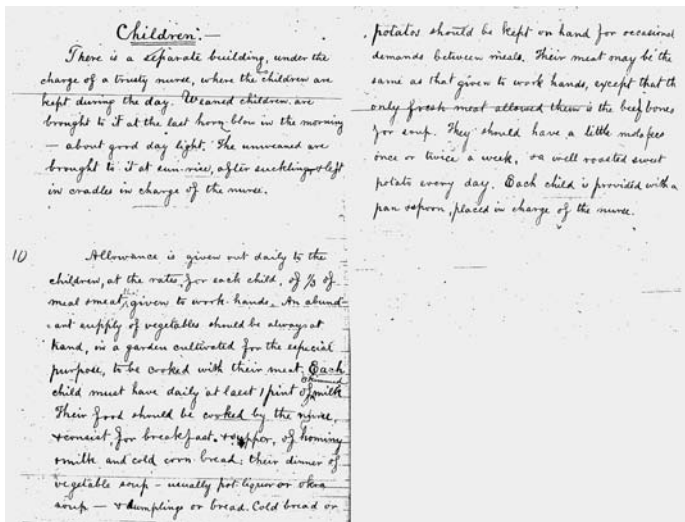 Children:—
There is a separate building, under the
charge of a trusty nurse, where the children are
kept during the day. Weaned children are
brought to it at the last horn blow in the morning
— about good day light. The unweaned are
brought to it at sun-rise, after suckling, & left
in cradles in charge of the nurse.
10 Allowance is given out daily to the
children, at the rates, for each child, of 1/3 of
meal & meat, given to work-hands. An abund-
ant supply of vegetables should be always at
hand, in a garden cultivated for the especial
purpose, to be cooked with their meat. Each
child must have daily at least 1 pint of skimmed milk
Their food should be cooked by the nurse,
& consist, for breakfast & supper, of hominy
& milk and cold corn bread; their dinner of
vegetable soup – usually pot-liquor or okra
soup — & dumplings or bread. Cold bread or
potatos should be kept on hand for occasional
demands between meals. Their meat may be the
same as that given to work hands, except that th
only fresh meat allowed them is the beef bones
for soup. They should have a little molasses
once or twice a week, & a well roasted sweet
potato every day. Each child is provided with a
pan & spoon, placed in charge of the nurse.